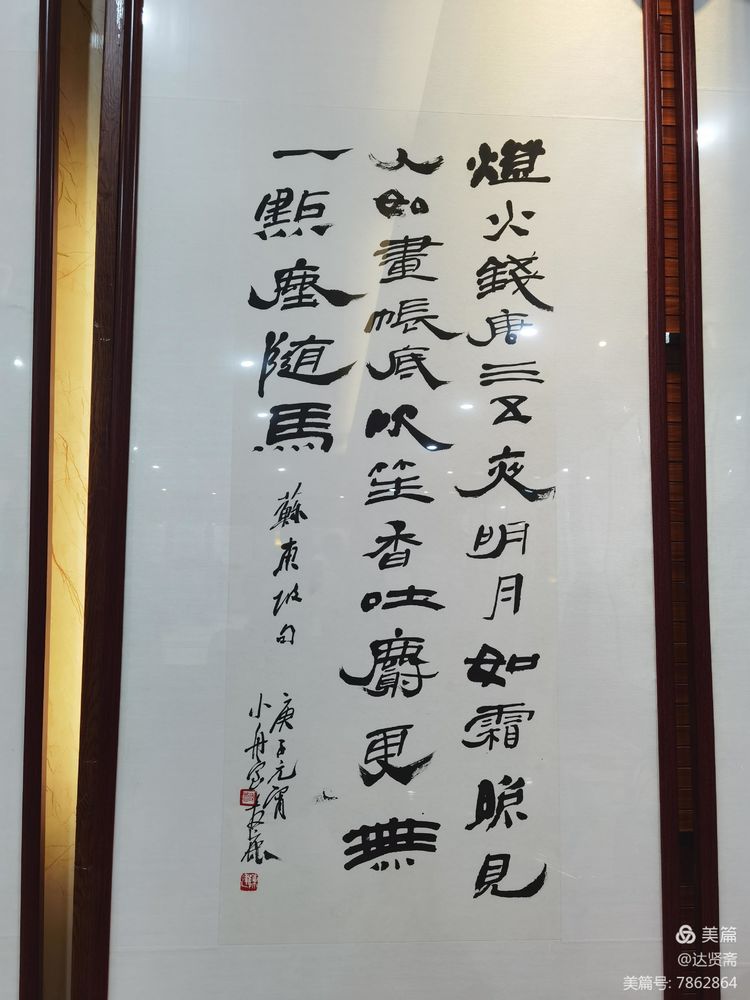 燈火錢唐三五夜明月如霜照見
人如畫帳底吹笙香吐麝更無
一點塵隨馬
蘇東坡句
庚子元宵
小舟
美篇
@达贤斋
美篇号: 7862864